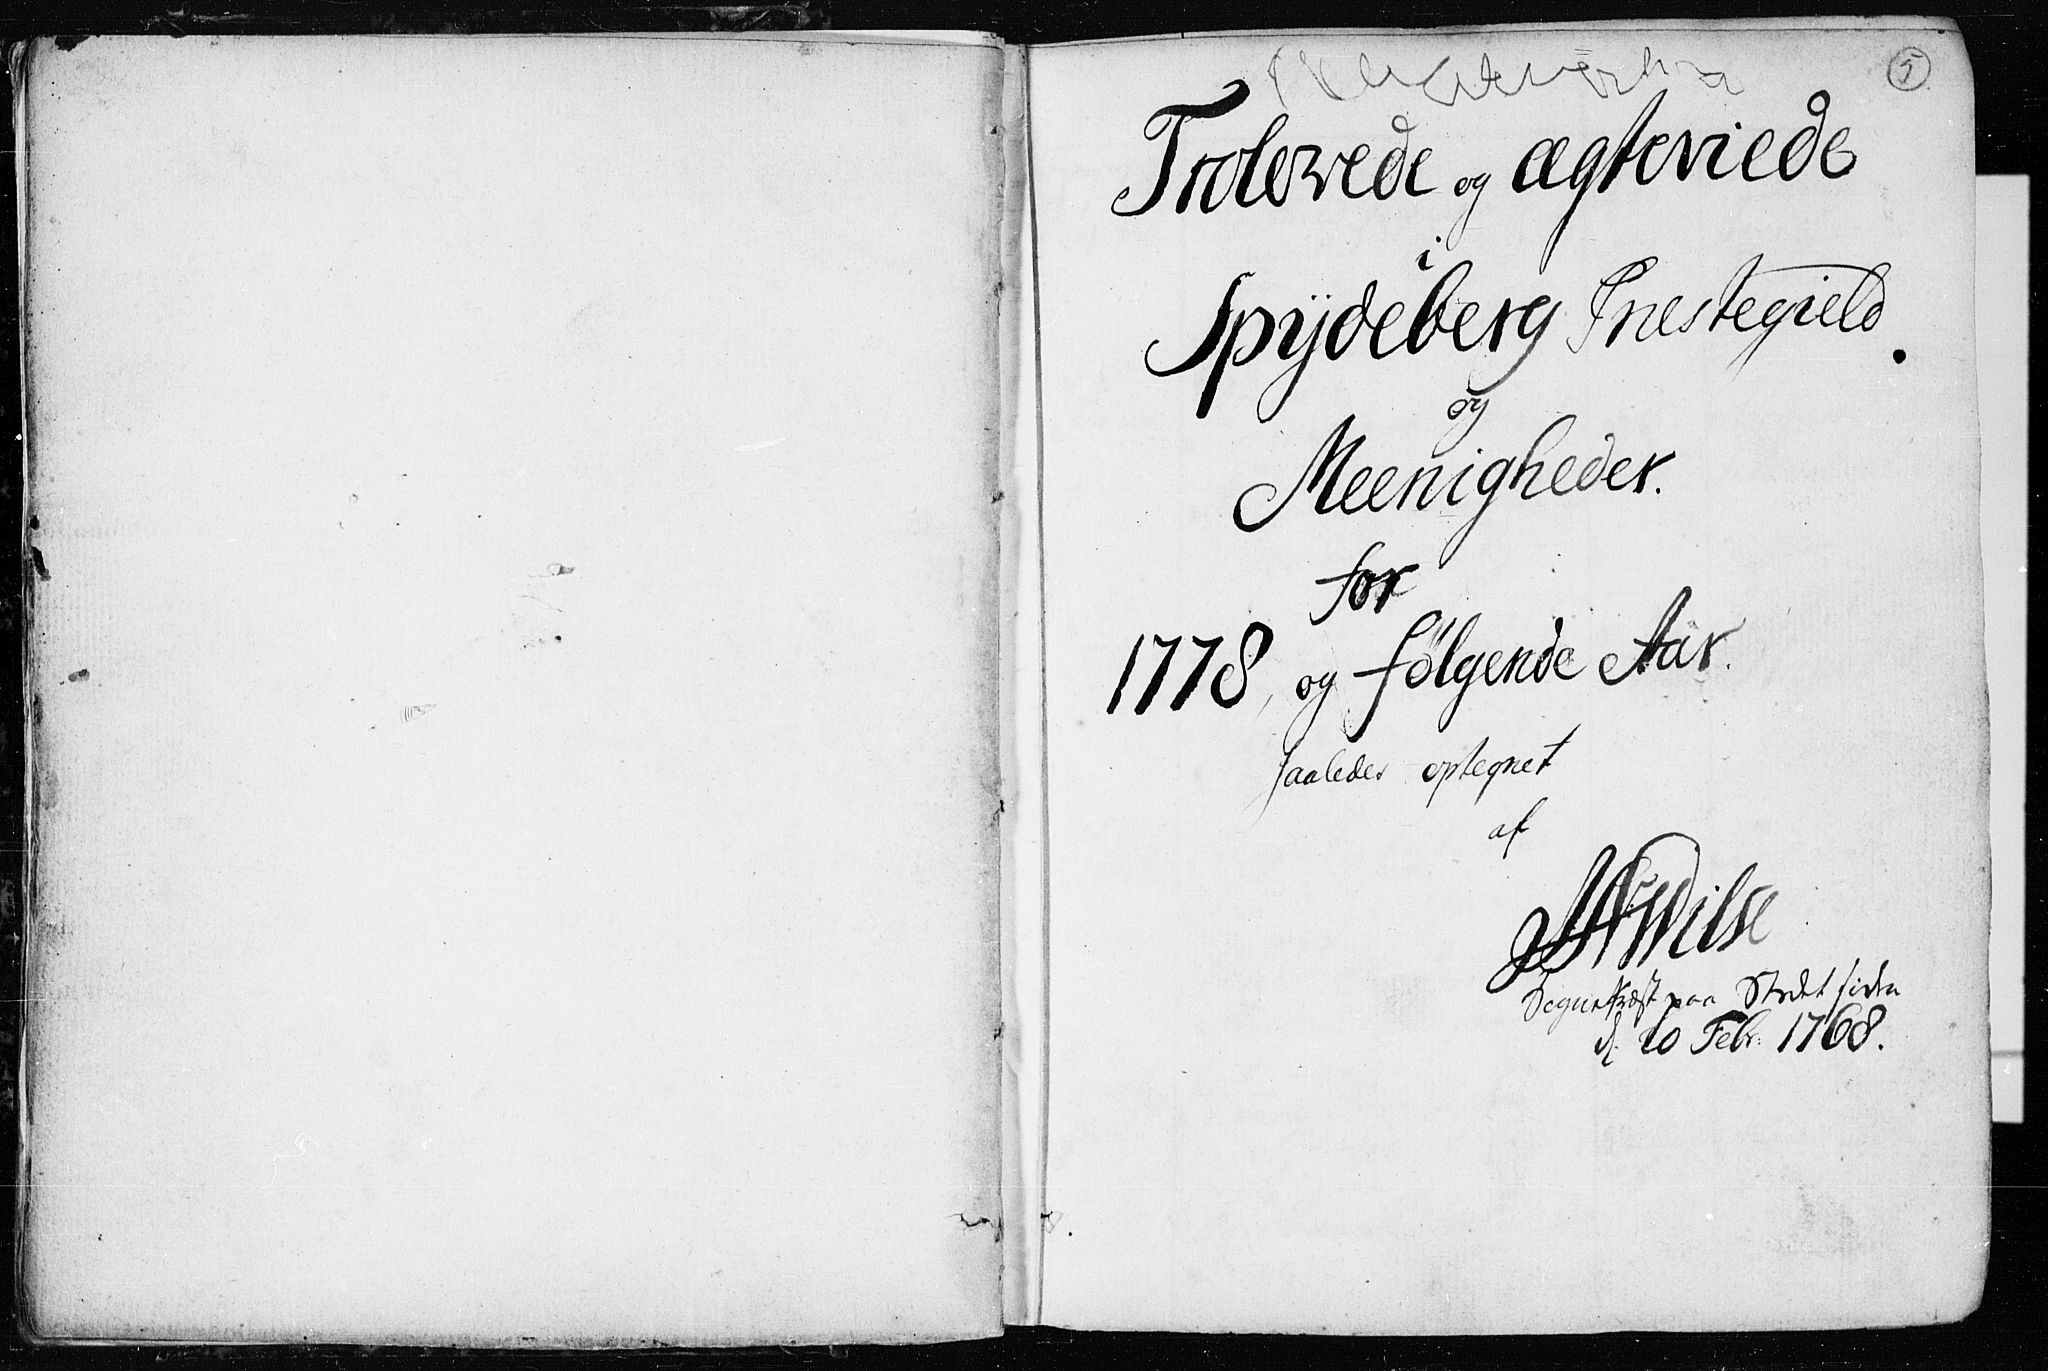 5
Trolovede og ægteviede
i
Spydeberg Prestegield.
og
Meenigheder.
for
1778, og følgende Aar.
saaledes optegnet
af
JNWilse
Sognepræst paa Stædet siden
d. 20 Febr. 1768.